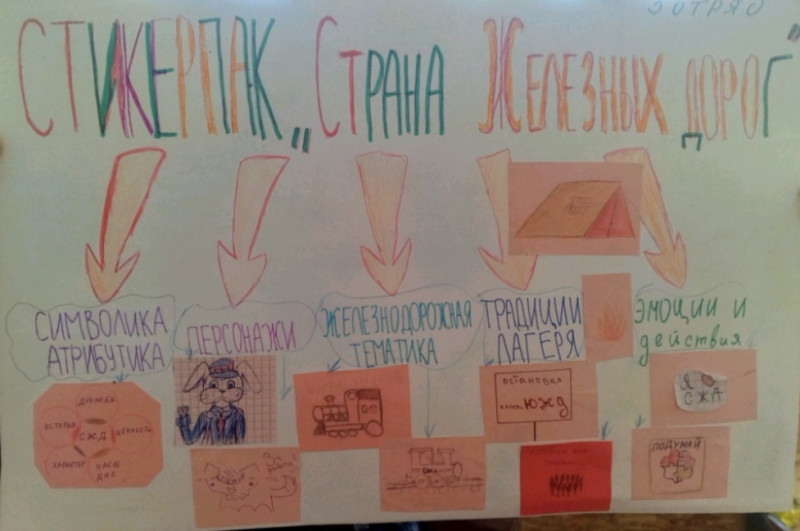 3 ОТРЯД
СТИКЕРПАК „СТРАНА ЖЕЛЕЗНЫХ ДОРОГ"
СИМВОЛИКА
АТРИБУТИКА
ПЕРСОНАЖИ
ЖЕЛЕЗНОДОРОЖНАЯ
ТЕМАТИКА
ТРАДИЦИИ
ЛАГЕРЯ
ЭМОЦИИ И
действия
ДРУЖБА
ИСТОРИЯ
СЖД
ЦЕННОСТЬ
ХАРАКТЕР
ОСТАНОВКА
ЮЖД
Я
СЖД
ПОДУМАЙ